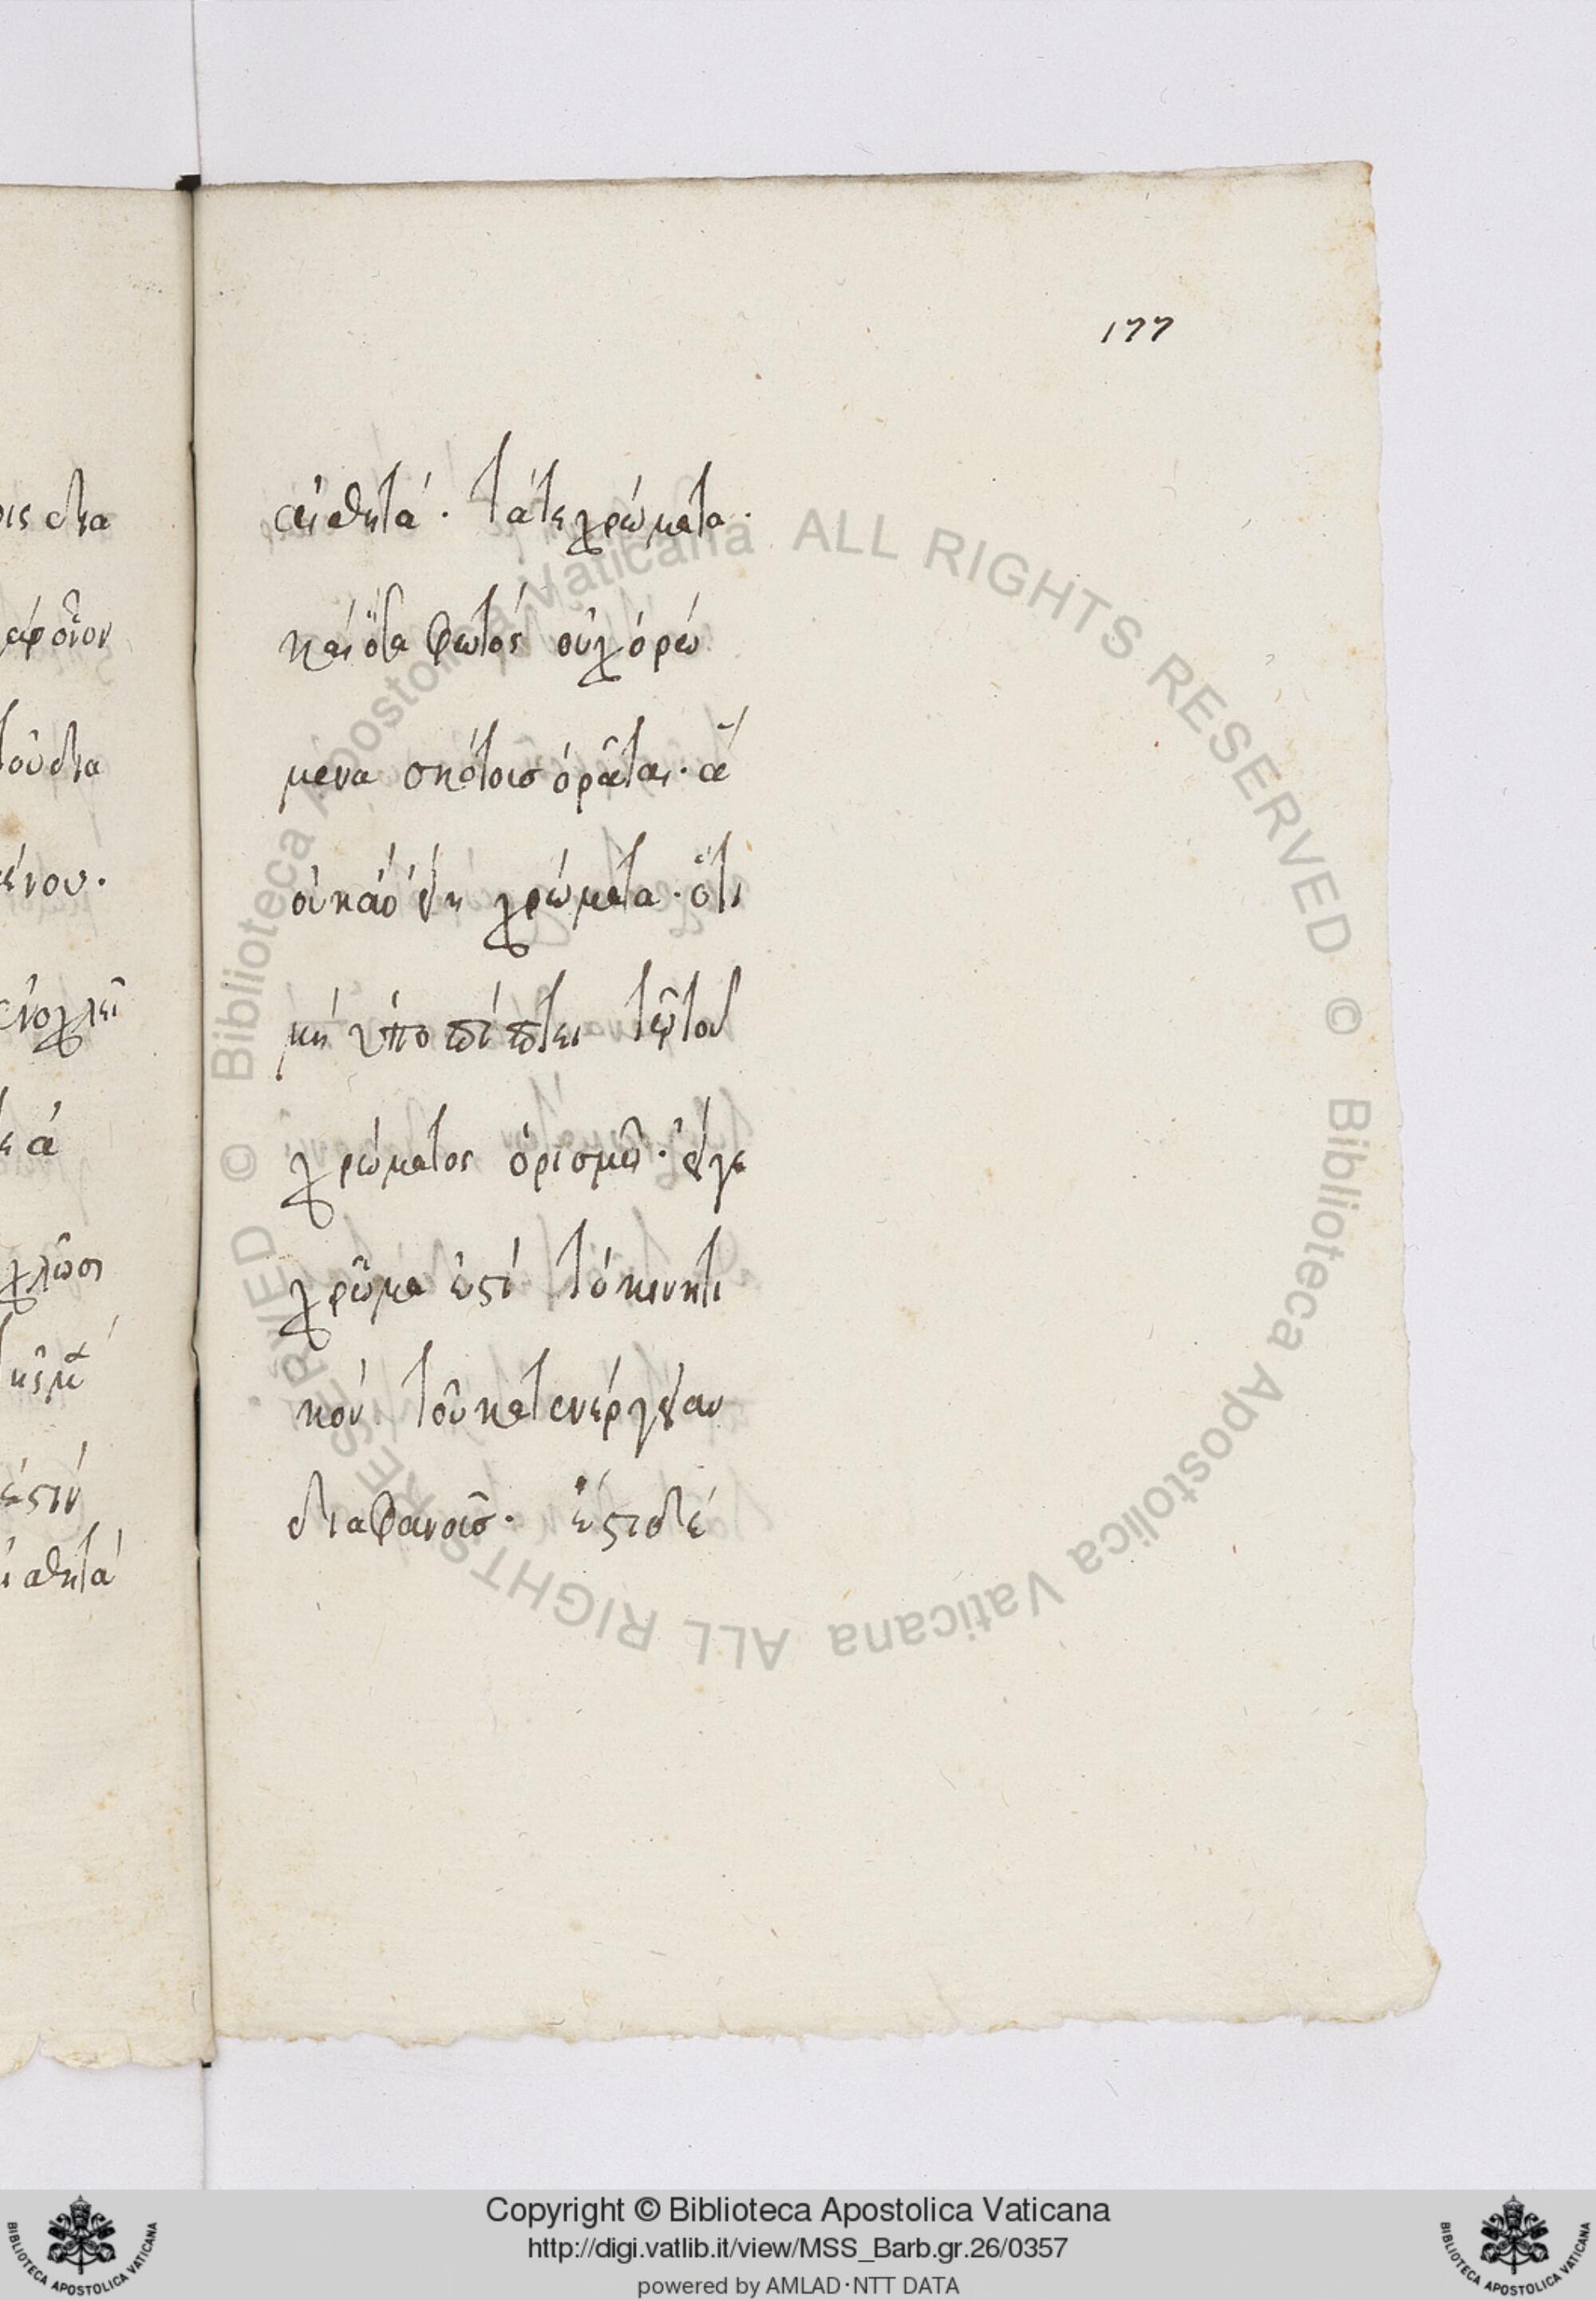 177
αἰσθητά. τάτε χρώματα.
καὶ ὅσα φωτὸς οὐχ ὁρώ
μενα σκότοις ὁρᾶται. ἃ
οὐκ
χρώματα. ὅτι
μὴ ὑποπίπτει τῷ τοῦ
χρώματος ὁρισμῷ. εἴγε
χρῶμα ἐστὶ τὸ κινητι
κὸν τοῦ κατ ενέργειαν
διαφανοῦς. ἔστι δέ
ALL RIGHTS RESERVED © Biblioteca Apostolica Vaticana ALL RIGHTS RESERVED © Biblioteca Apostolica Vaticana
Copyright © Biblioteca Apostolica Vaticana
http://digi.vatlib.it/view/MSS_Barb.gr.26/0357
powered by AMLAD·NTT DATA
BIBLIOTECA APOSTOLICA VATICANA
BIBLIOTECA APOSTOLICA VATICANA